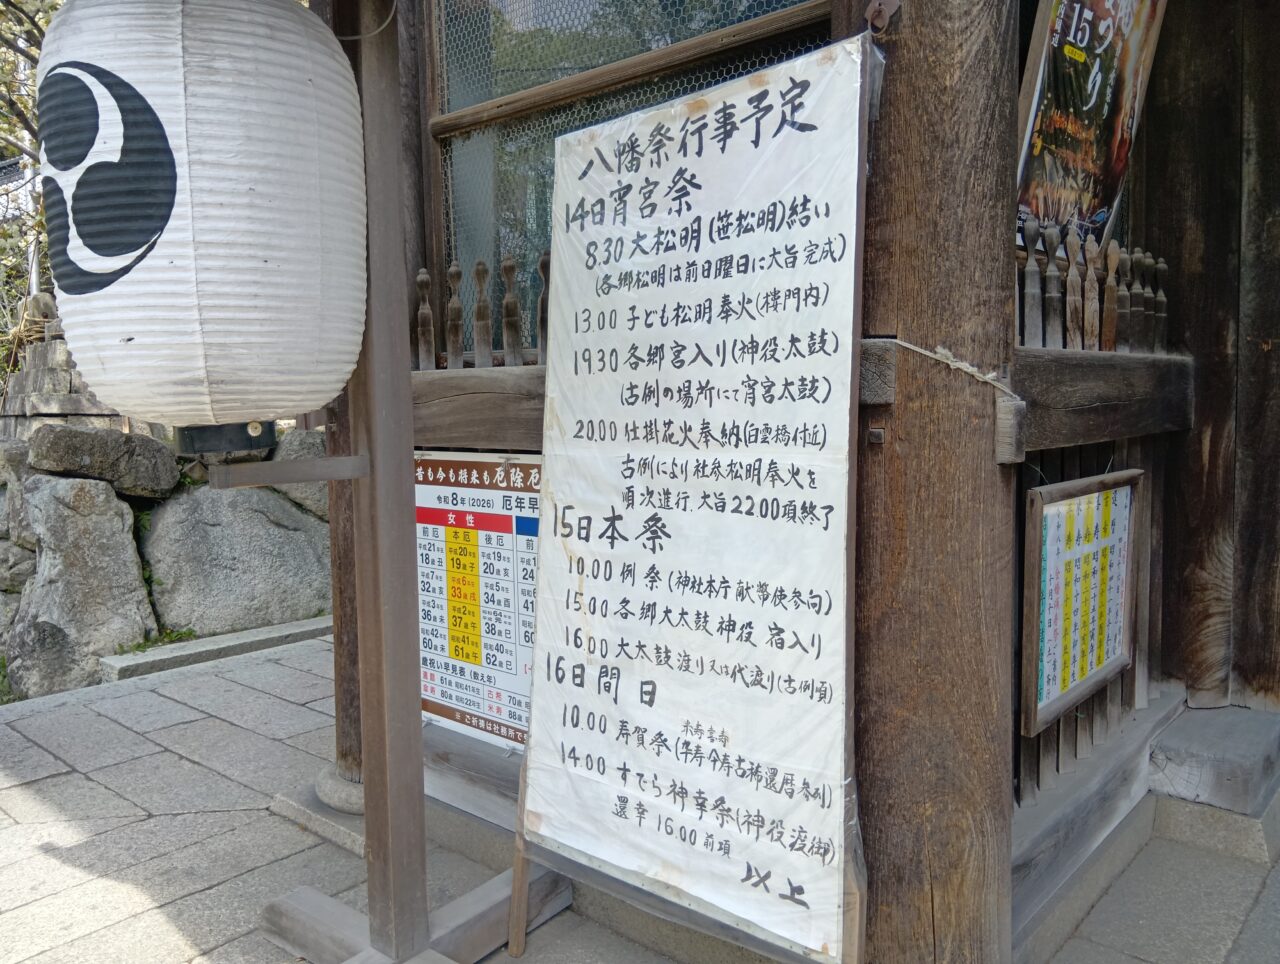 八幡祭行事予定
14日宵宮祭
8.30 大松明(笹松明)結い
(各郷松明は前日曜日に大旨完成)
13.00 子ども松明奉火(楼門内)
19.30 各郷宮入り(神役太鼓)
(古例の場所にて宵宮太鼓)
20.00 仕掛花火奉納(白雲橋付近)
古例により社参松明奉火を
順次進行.大旨22.00項終了
15日本祭
10.00 例祭(神社本庁献幣使参向)
15.00 各郷大太鼓神役宿入り
16.00 大太鼓渡り又は代渡り(古例順)
16日間日
米寿喜寿
10.00 寿賀祭(卒寿傘寿古稀還暦参列)
14.00 すでら神幸祭(神役渡御)
還幸 16.00 前項
以上
昔も今も将来も厄除
令和8年(2026) 厄年早
女性
前厄 本厄 後厄
平成21年生 平成20年生 平成19年生
18歳丑 19歳子 20歳亥
平成7年生 平成6年生 平成5年生
32歳亥 33歳戌 34歳酉
平成3年生 平成2年生 昭和64年 平成元年
36歳未 37歳午 38歳巳
昭和42年生 昭和41年生 昭和40年生
60歳未 61歳午 62歳巳
歳祝い早見表(数え年)
還暦 61歳 昭和41年生 古希 70歳
傘壽 80歳 昭和22年生 米寿 88歳
※ご祈祷は社務所で
15